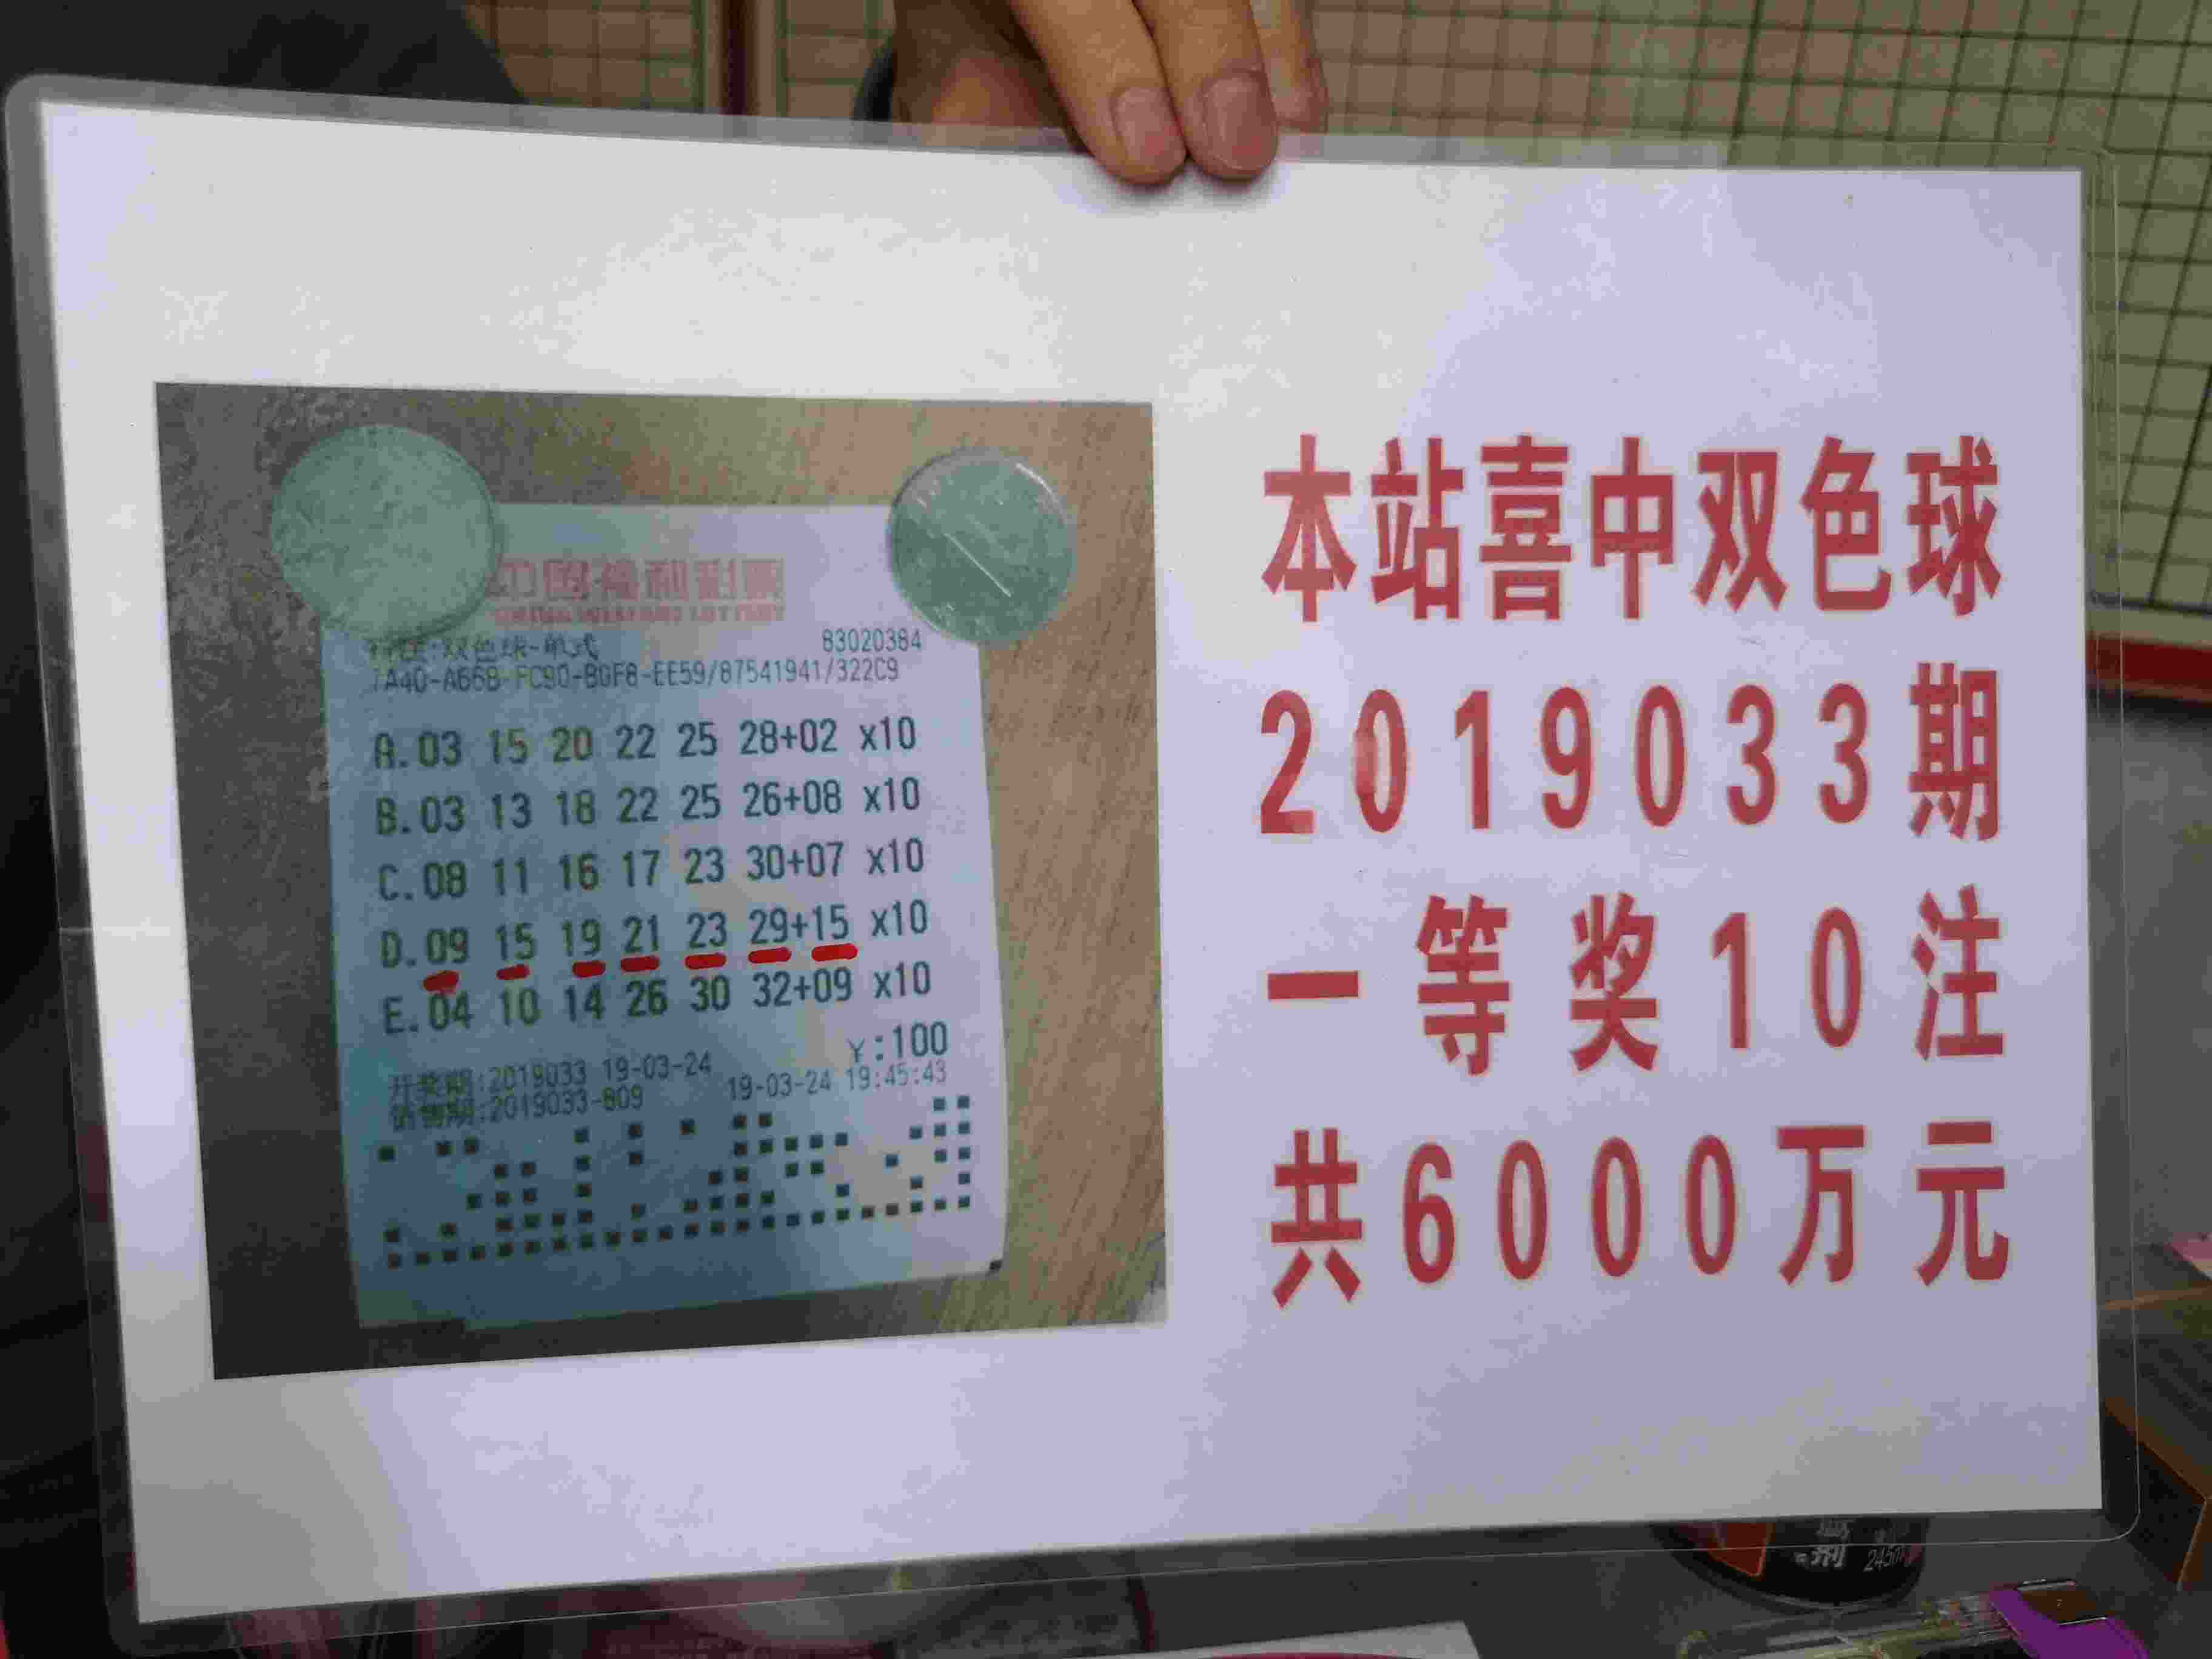 本站喜中双色球
2019033期
一等奖10注
共6000万元
双色球-单式 83020384
7A40-A66B-FC90-B0F8-EE59/87541941/322C9
A.03 15 20 22 25 28+02 x10
B.03 13 18 22 25 26+08 x10
C.08 11 16 17 23 30+07 x10
D.09 15 19 21 23 29+15 x10
E.04 10 14 26 30 32+09 x10
¥:100
开奖期:2019033 19-03-24
销售期:2019033-809 19-03-24 19:45:43